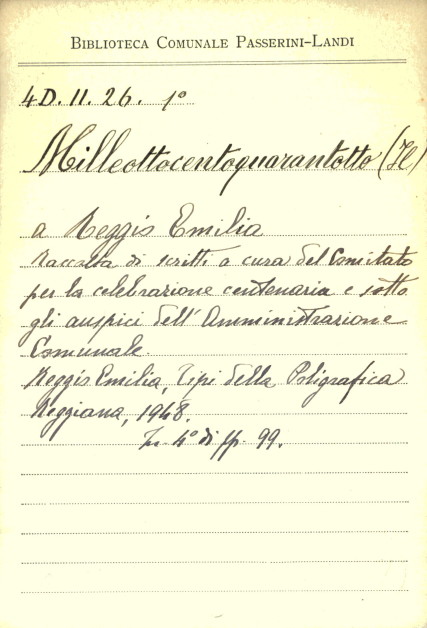 BIBLIOTECA COMUNALE PASSERINI-LANDI
4D.II.26. 1º
Milleottocentoquarantotto (Il)
a Reggio Emilia
Raccolta di scritti a cura del Comitato
per la celebrazione centenaria e sotto
gli auspici dell'Amministrazione
Comunale.
Reggio Emilia, Tipi della Poligrafica
Reggiana, 1948.
In 4º di pp. 99.